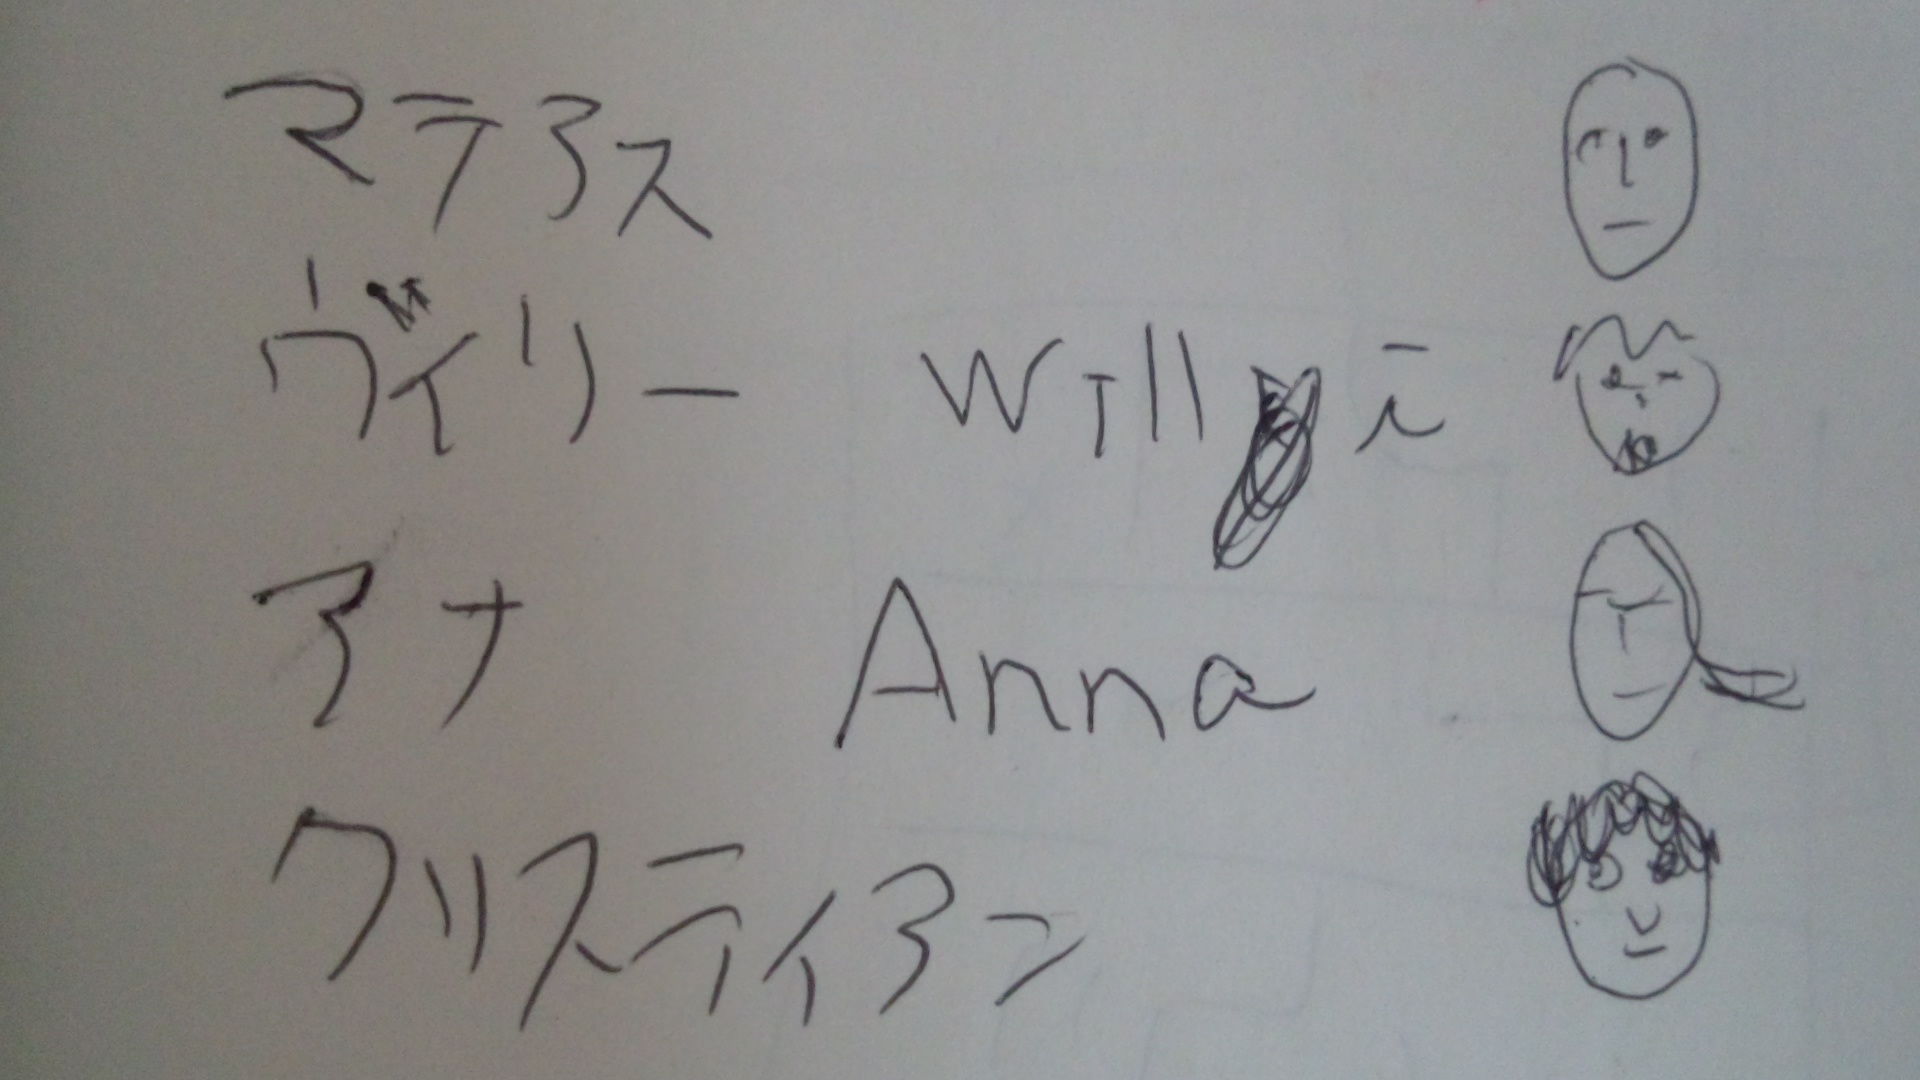 マテアス
ヴィリー Willi
アナ Anna
クリスティアン